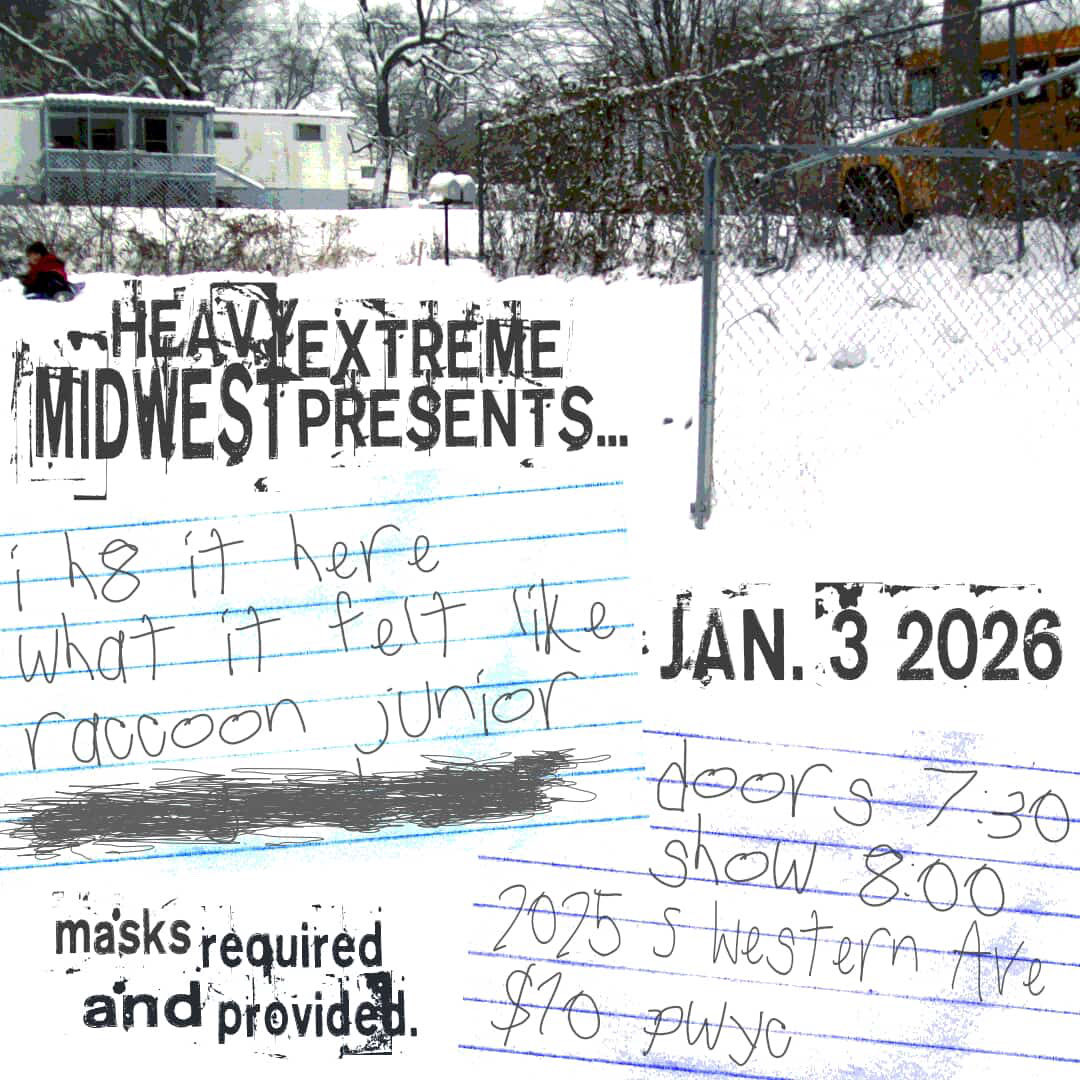 HEAVY EXTREME
MIDWEST PRESENTS...
i h8 it here
what it felt like
raccoon junior
JAN. 3 2026
doors 7:30
show 8:00
2025 S Western Ave
$10 pwyc
masks required
and provided.